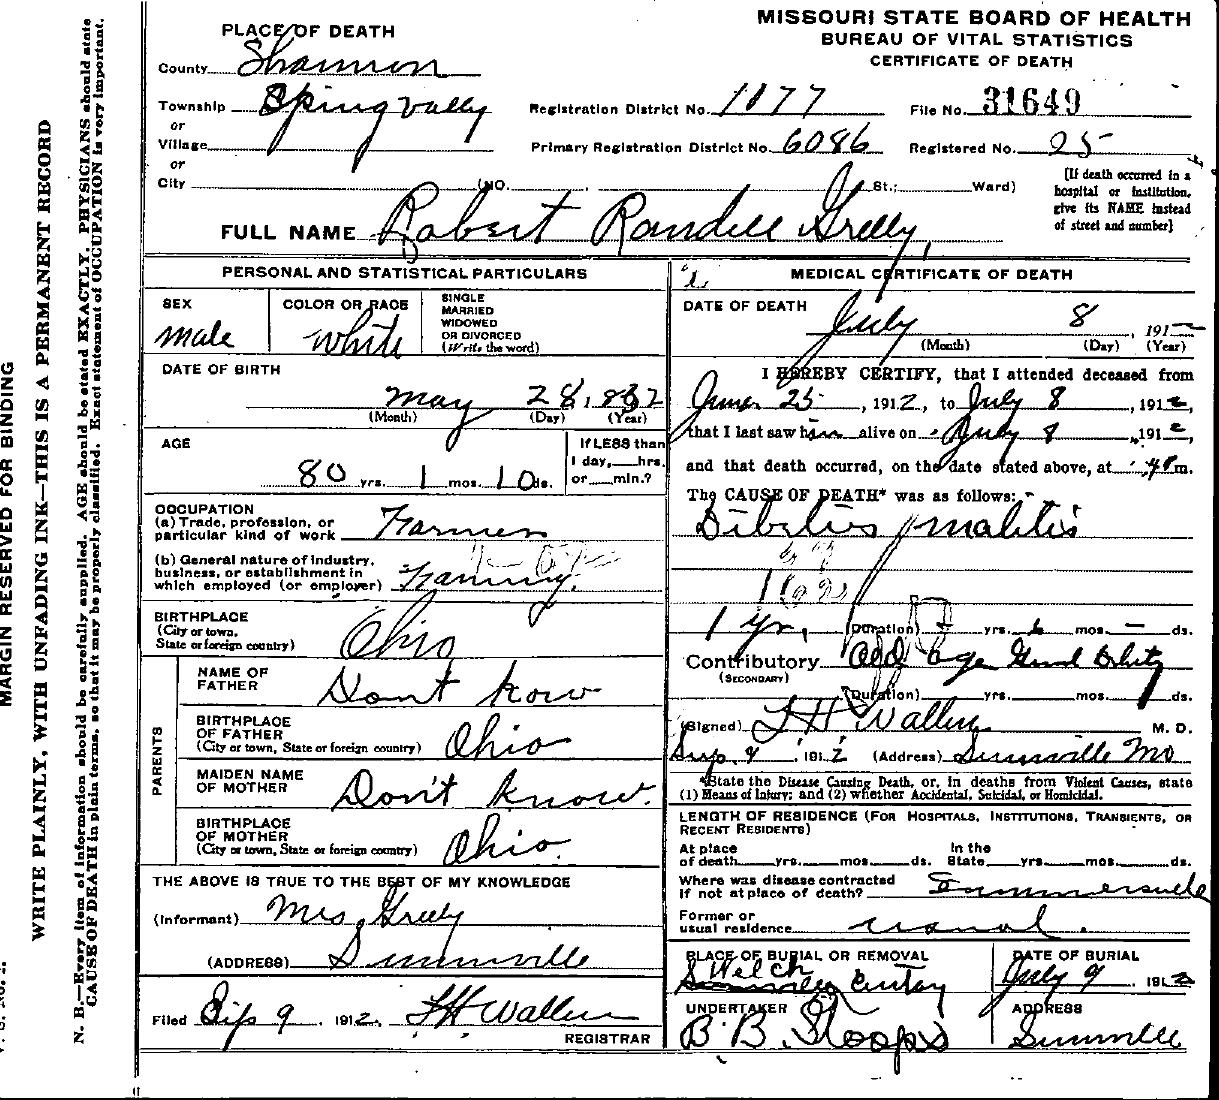 MISSOURI STATE BOARD OF HEALTH
BUREAU OF VITAL STATISTICS
CERTIFICATE OF DEATH
PLACE OF DEATH
County Shannon
Township Spingvally
or
Village
or
City (NO. , St.; Ward)
Registration District No. 1077 File No. 31649
Primary Registration District No. 6086 Registered No. 25
[If death occurred in a
hospital or institution,
give its NAME instead
of street and number]
FULL NAME Robert Randell Grelly
PERSONAL AND STATISTICAL PARTICULARS
SEX
male
COLOR OR RACE
white
SINGLE
MARRIED
WIDOWED
OR DIVORCED
(Write the word)
DATE OF BIRTH
May 28, 832
(Month) (Day) (Year)
AGE
80 yrs. 1 mos. 10 ds.
If LESS than
1 day, hrs.
or min.?
OCCUPATION
(a) Trade, profession, or
particular kind of work Farmer
(b) General nature of industry,
business, or establishment in
which employed (or employer) Farming
BIRTHPLACE
(City or town,
State or foreign country) Ohio
PARENTS
NAME OF
FATHER Dont kow
BIRTHPLACE
OF FATHER
(City or town, State or foreign country) Ohio
MAIDEN NAME
OF MOTHER Don't know.
BIRTHPLACE
OF MOTHER
(City or town, State or foreign country) Ohio.
THE ABOVE IS TRUE TO THE BEST OF MY KNOWLEDGE
(Informant) Mrs Greely
(ADDRESS) Summville
Filed Sep 9 , 1912, J H Wallen
REGISTRAR
MEDICAL CERTIFICATE OF DEATH
DATE OF DEATH
July 8 , 191
(Month) (Day) (Year)
I HEREBY CERTIFY, that I attended deceased from
June 25 , 1912, to July 8 , 1912,
that I last saw him alive on July 8 , 1912,
and that death occurred, on the date stated above, at m.
The CAUSE OF DEATH* was as follows:
Dibetius malitis
1 yr, (Duration) yrs. 6 mos. – ds.
Contributory Old age
(SECONDARY)
(Duration) yrs. mos. ds.
(Signed) J H Wallen M. D.
Sep. 9 , 1912 (Address) Summville Mo
*State the Disease Causing Death, or, in deaths from Violent Causes, state
(1) Means of Injury; and (2) whether Accidental, Suicidal, or Homicidal.
LENGTH OF RESIDENCE (FOR HOSPITALS, INSTITUTIONS, TRANSIENTS, OR
RECENT RESIDENTS)
At place In the
of death yrs. mos. ds. State yrs. mos. ds.
Where was disease contracted
if not at place of death? Summersville
Former or
usual residence usual.
PLACE OF BURIAL OR REMOVAL
Welch
DATE OF BURIAL
July 9 1912
UNDERTAKER
B. B. Stoops
ADDRESS
Summville
MARGIN RESERVED FOR BINDING
WRITE PLAINLY, WITH UNFADING INK—THIS IS A PERMANENT RECORD
N. B.—Every item of information should be carefully supplied. AGE should be stated EXACTLY. PHYSICIANS should state
CAUSE OF DEATH in plain terms, so that it may be properly classified. Exact statement of OCCUPATION is very important.